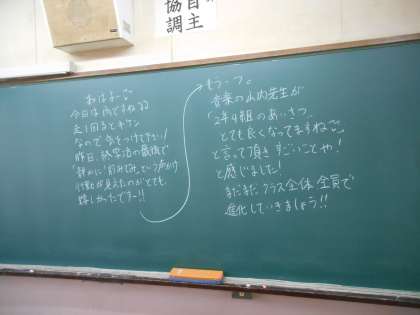 自主
協調
おはよーこ
今日は雨ですねぇ
走り回るとキケン
なので気をつけて下さい!
昨日、終学活の最後で
静かに「前みてね」という声かけ
行動が見えたのがとても
嬉しかったですー!!
もう一つ。
音楽の山内先生が
「2年4組のあいさつ、
とても良くなってますねこ」
と言って頂き すごいことや!
と感じました!
まだまだ クラス全体 全員で
進化していきましょう!!